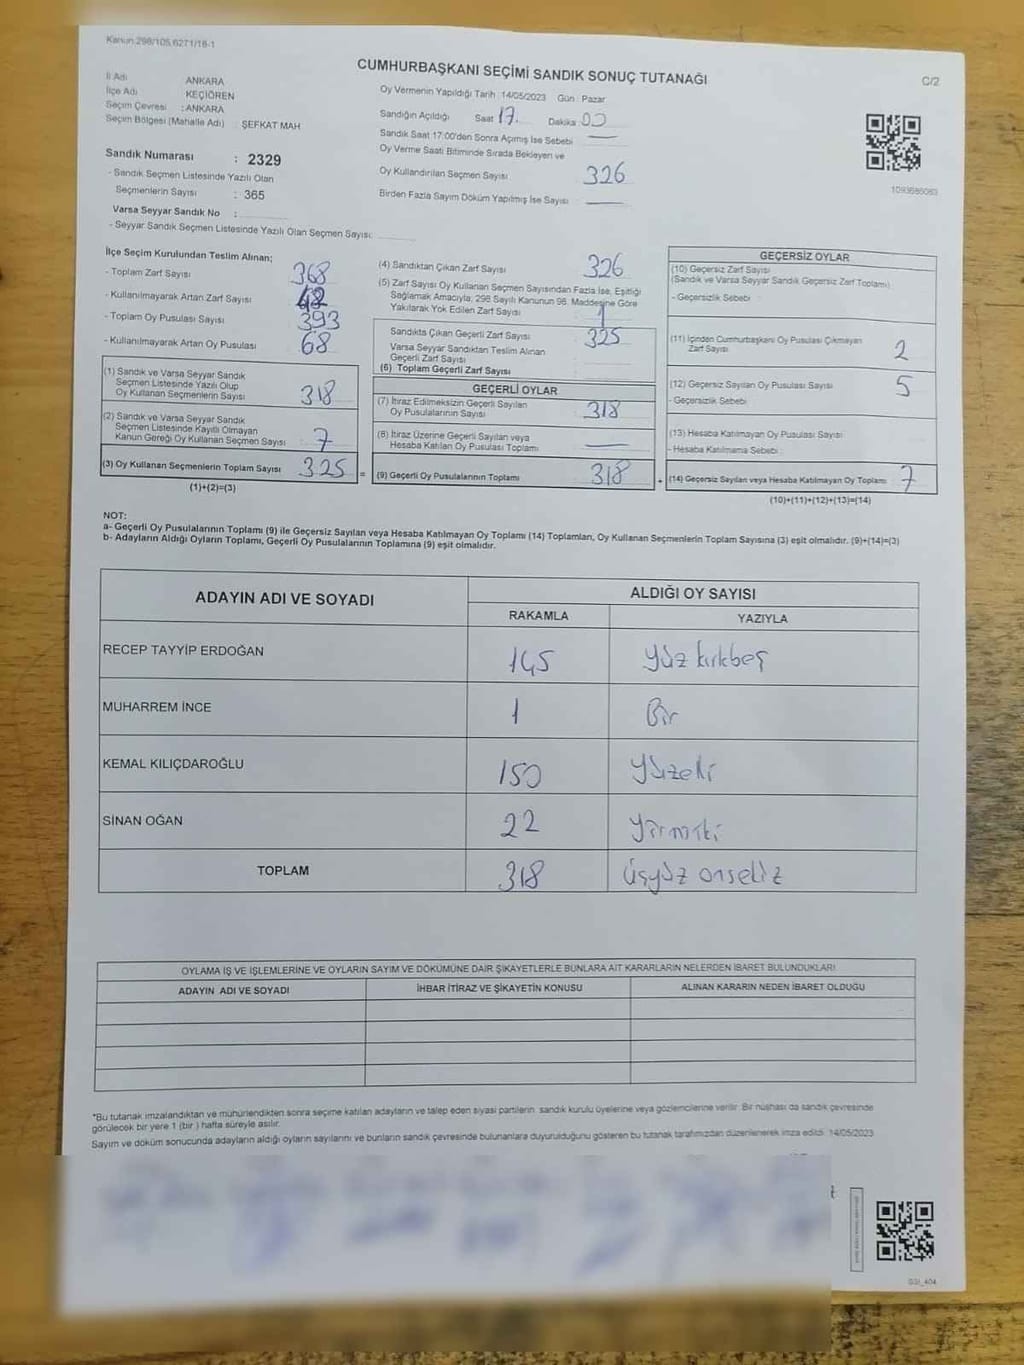 Kanun:298/105,6271/18-1
CUMHURBAŞKANI SEÇİMİ SANDIK SONUÇ TUTANAĞI
C/2
İl Adı ANKARA
İlçe Adı KEÇİÖREN
Seçim Çevresi : ANKARA
Seçim Bölgesi (Mahalle Adı) : ŞEFKAT MAH
Sandık Numarası : 2329
- Sandık Seçmen Listesinde Yazılı Olan
Seçmenlerin Sayısı : 365
Varsa Seyyar Sandık No :
- Seyyar Sandık Seçmen Listesinde Yazılı Olan Seçmen Sayısı:
Oy Vermenin Yapıldığı Tarih : 14/05/2023 Gün : Pazar
Sandığın Açıldığı Saat 17. Dakika 00
Sandık Saat 17:00'den Sonra Açımış İse Sebebi
Oy Verme Saati Bitiminde Sırada Bekleyen ve
Oy Kullandırılan Seçmen Sayısı 326
Birden Fazla Sayım Döküm Yapılmış İse Sayısı
1093686063
İlçe Seçim Kurulundan Teslim Alınan;
- Toplam Zarf Sayısı 368
- Kullanılmayarak Artan Zarf Sayısı 42
- Toplam Oy Pusulası Sayısı 393
- Kullanılmayarak Artan Oy Pusulası 68
(1) Sandık ve Varsa Seyyar Sandık
Seçmen Listesinde Yazılı Olup
Oy Kullanan Seçmenlerin Sayısı 318
(2) Sandık ve Varsa Seyyar Sandık
Seçmen Listesinde Kayıtlı Olmayan
Kanun Gereği Oy Kullanan Seçmen Sayısı 7
(3) Oy Kullanan Seçmenlerin Toplam Sayısı 325 =
(1)+(2)=(3)
(4) Sandıktan Çıkan Zarf Sayısı 326
(5) Zarf Sayısı Oy Kullanan Seçmen Sayısından Fazla İse, Eşitliği
Sağlamak Amacıyla; 298 Sayılı Kanunun 98. Maddesine Göre
Yakılarak Yok Edilen Zarf Sayısı 1
Sandıkta Çıkan Geçerli Zarf Sayısı 325
Varsa Seyyar Sandıktan Teslim Alınan
Geçerli Zarf Sayısı
(6) Toplam Geçerli Zarf Sayısı
GEÇERLİ OYLAR
(7) İtiraz Edilmeksizin Geçerli Sayılan
Oy Pusulalarının Sayısı 318
(8) İtiraz Üzerine Geçerli Sayılan veya
Hesaba Katılan Oy Pusulası Toplamı
(9) Geçerli Oy Pusulalarının Toplamı 318 +
GEÇERSİZ OYLAR
(10) Geçersiz Zarf Sayısı
(Sandık ve Varsa Seyyar Sandık Geçersiz Zarf Toplamı)
- Geçersizlik Sebebi :
(11) İçinden Cumhurbaşkanı Oy Pusulası Çıkmayan
Zarf Sayısı 2
(12) Geçersiz Sayılan Oy Pusulası Sayısı 5
- Geçersizlik Sebebi
(13) Hesaba Katılmayan Oy Pusulası Sayısı
- Hesaba Katılmama Sebebi :
(14) Geçersiz Sayılan veya Hesaba Katılmayan Oy Toplamı 7
(10)+(11)+(12)+(13)=(14)
NOT:
a- Geçerli Oy Pusulalarının Toplamı (9) ile Geçersiz Sayılan veya Hesaba Katılmayan Oy Toplamı (14) Toplamları, Oy Kullanan Seçmenlerin Toplam Sayısına (3) eşit olmalıdır. (9)+(14)=(3)
b- Adayların Aldığı Oyların Toplamı, Geçerli Oy Pusulalarının Toplamına (9) eşit olmalıdır.
ADAYIN ADI VE SOYADI ALDIĞI OY SAYISI
RAKAMLA YAZIYLA
RECEP TAYYİP ERDOĞAN 145 Yüz kırkbeş
MUHARREM İNCE 1 Bir
KEMAL KILIÇDAROĞLU 150 Yüzelli
SİNAN OĞAN 22 Yirmiiki
TOPLAM 318 Üçyüz onsekiz
OYLAMA İŞ VE İŞLEMLERİNE VE OYLARIN SAYIM VE DÖKÜMÜNE DAİR ŞİKAYETLERLE BUNLARA AİT KARARLARIN NELERDEN İBARET BULUNDUKLARI
ADAYIN ADI VE SOYADI İHBAR İTİRAZ VE ŞİKAYETİN KONUSU ALINAN KARARIN NEDEN İBARET OLDUĞU
*Bu tutanak imzalandıktan ve mühürlendikten sonra seçime katılan adayların ve talep eden siyasi partilerin sandık kurulu üyelerine veya gözlemcilerine verilir. Bir nüshası da sandık çevresinde
görülecek bir yere 1 (bir ) hafta süreyle asılır.
Sayım ve döküm sonucunda adayların aldığı oyların sayılarını ve bunların sandık çevresinde bulunanlara duyurulduğunu gösteren bu tutanak tarafımızdan düzenlenerek imza edildi. 14/05/2023